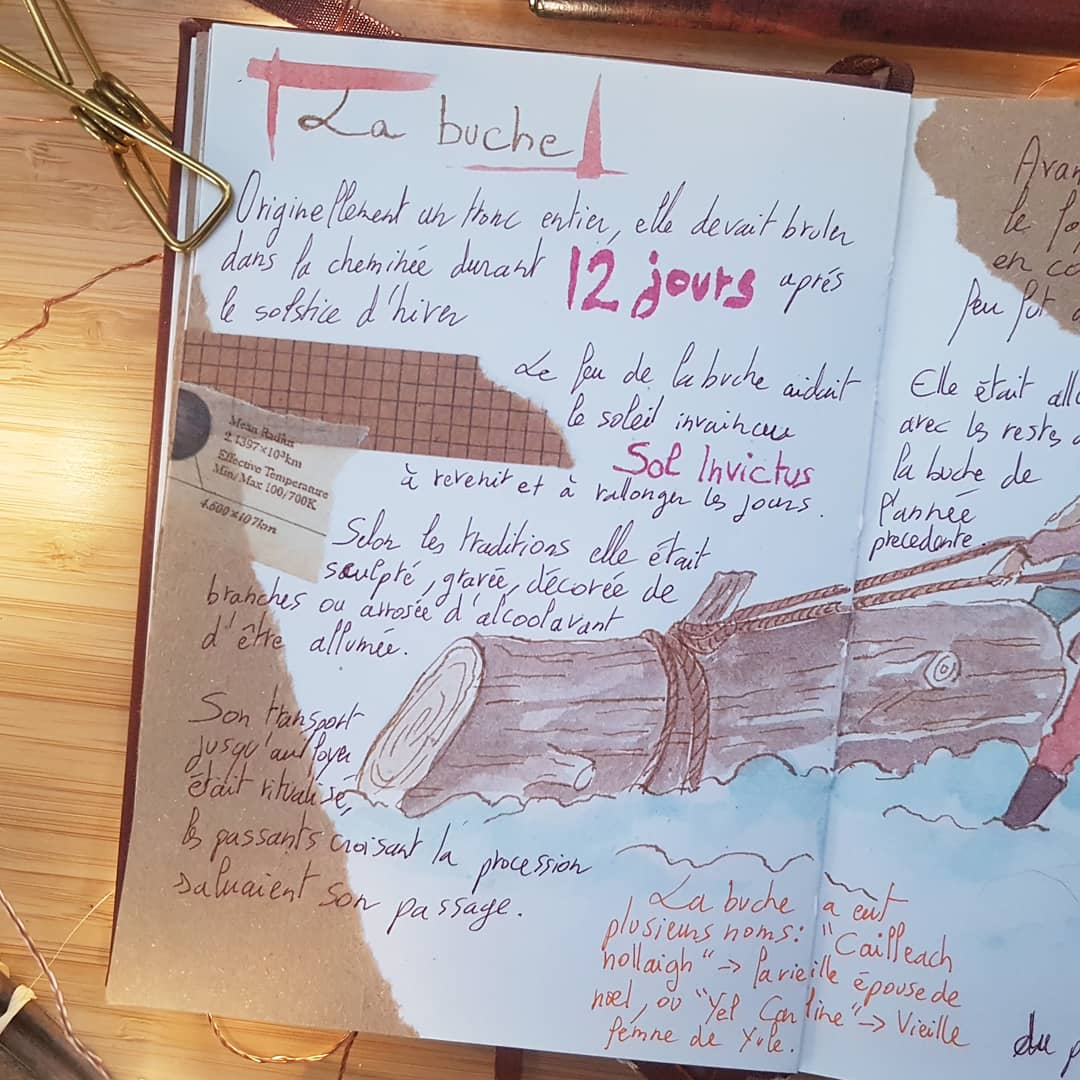 La buche
Originellement un tronc entier, elle devait bruler
dans la cheminée durant 12 jours aprés
le solstice d'hiver
Le feu de la buche aidait
le soleil invaincu
Sol Invictus
à revenir et à rallonger les jours.
Mean Radius
2.1397×10⁵km
Effective Temperature
Min/Max 100/700K
4.600×107km
Selon les traditions elle était
sculpté, gravée, décorée de
branches ou arrosée d'alcool avant
d'être allumée.
Son transport
jusqu'au foyer
était ritualisé,
les passants croisant la procession
saluaient son passage.
La buche a eut
plusieurs noms: "Cailleach
nollaigh" -> la vieille épouse de
noel, ou "Yel Carline" -> Vieille
femne de Yule.
Avan
le
en co
Peu
Elle était allu
avec les restes
la buche de
l'année
precedante.
du p